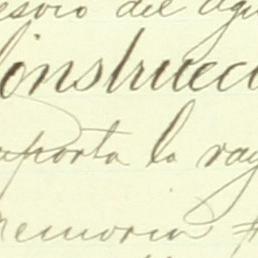 esoro del Agu
Construcci
aporta la ray
memoria #